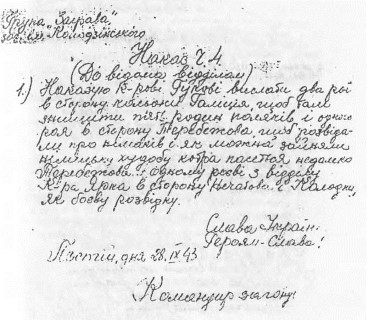 Група "Заграва"
Наказ ч. 4
(До відома відділам)
1.) Наказую к-рові Гукові вислати два рої
в сторону кольонії Галиція, щоб там
знищити пять родин поляків і одного
роя в сторону Теребежова, щоб розвіда-
ли про німаків і як можна зайняти
німецьку худобу котра пасеться недалеко
Теребежова і одному роєві з відділу
К-ра Ярка в сторону Нечатова і Колодки,
як боєву розвідку.
Слава Україні
Героям-Слава!
дня 28.IX.43
Командир загону: